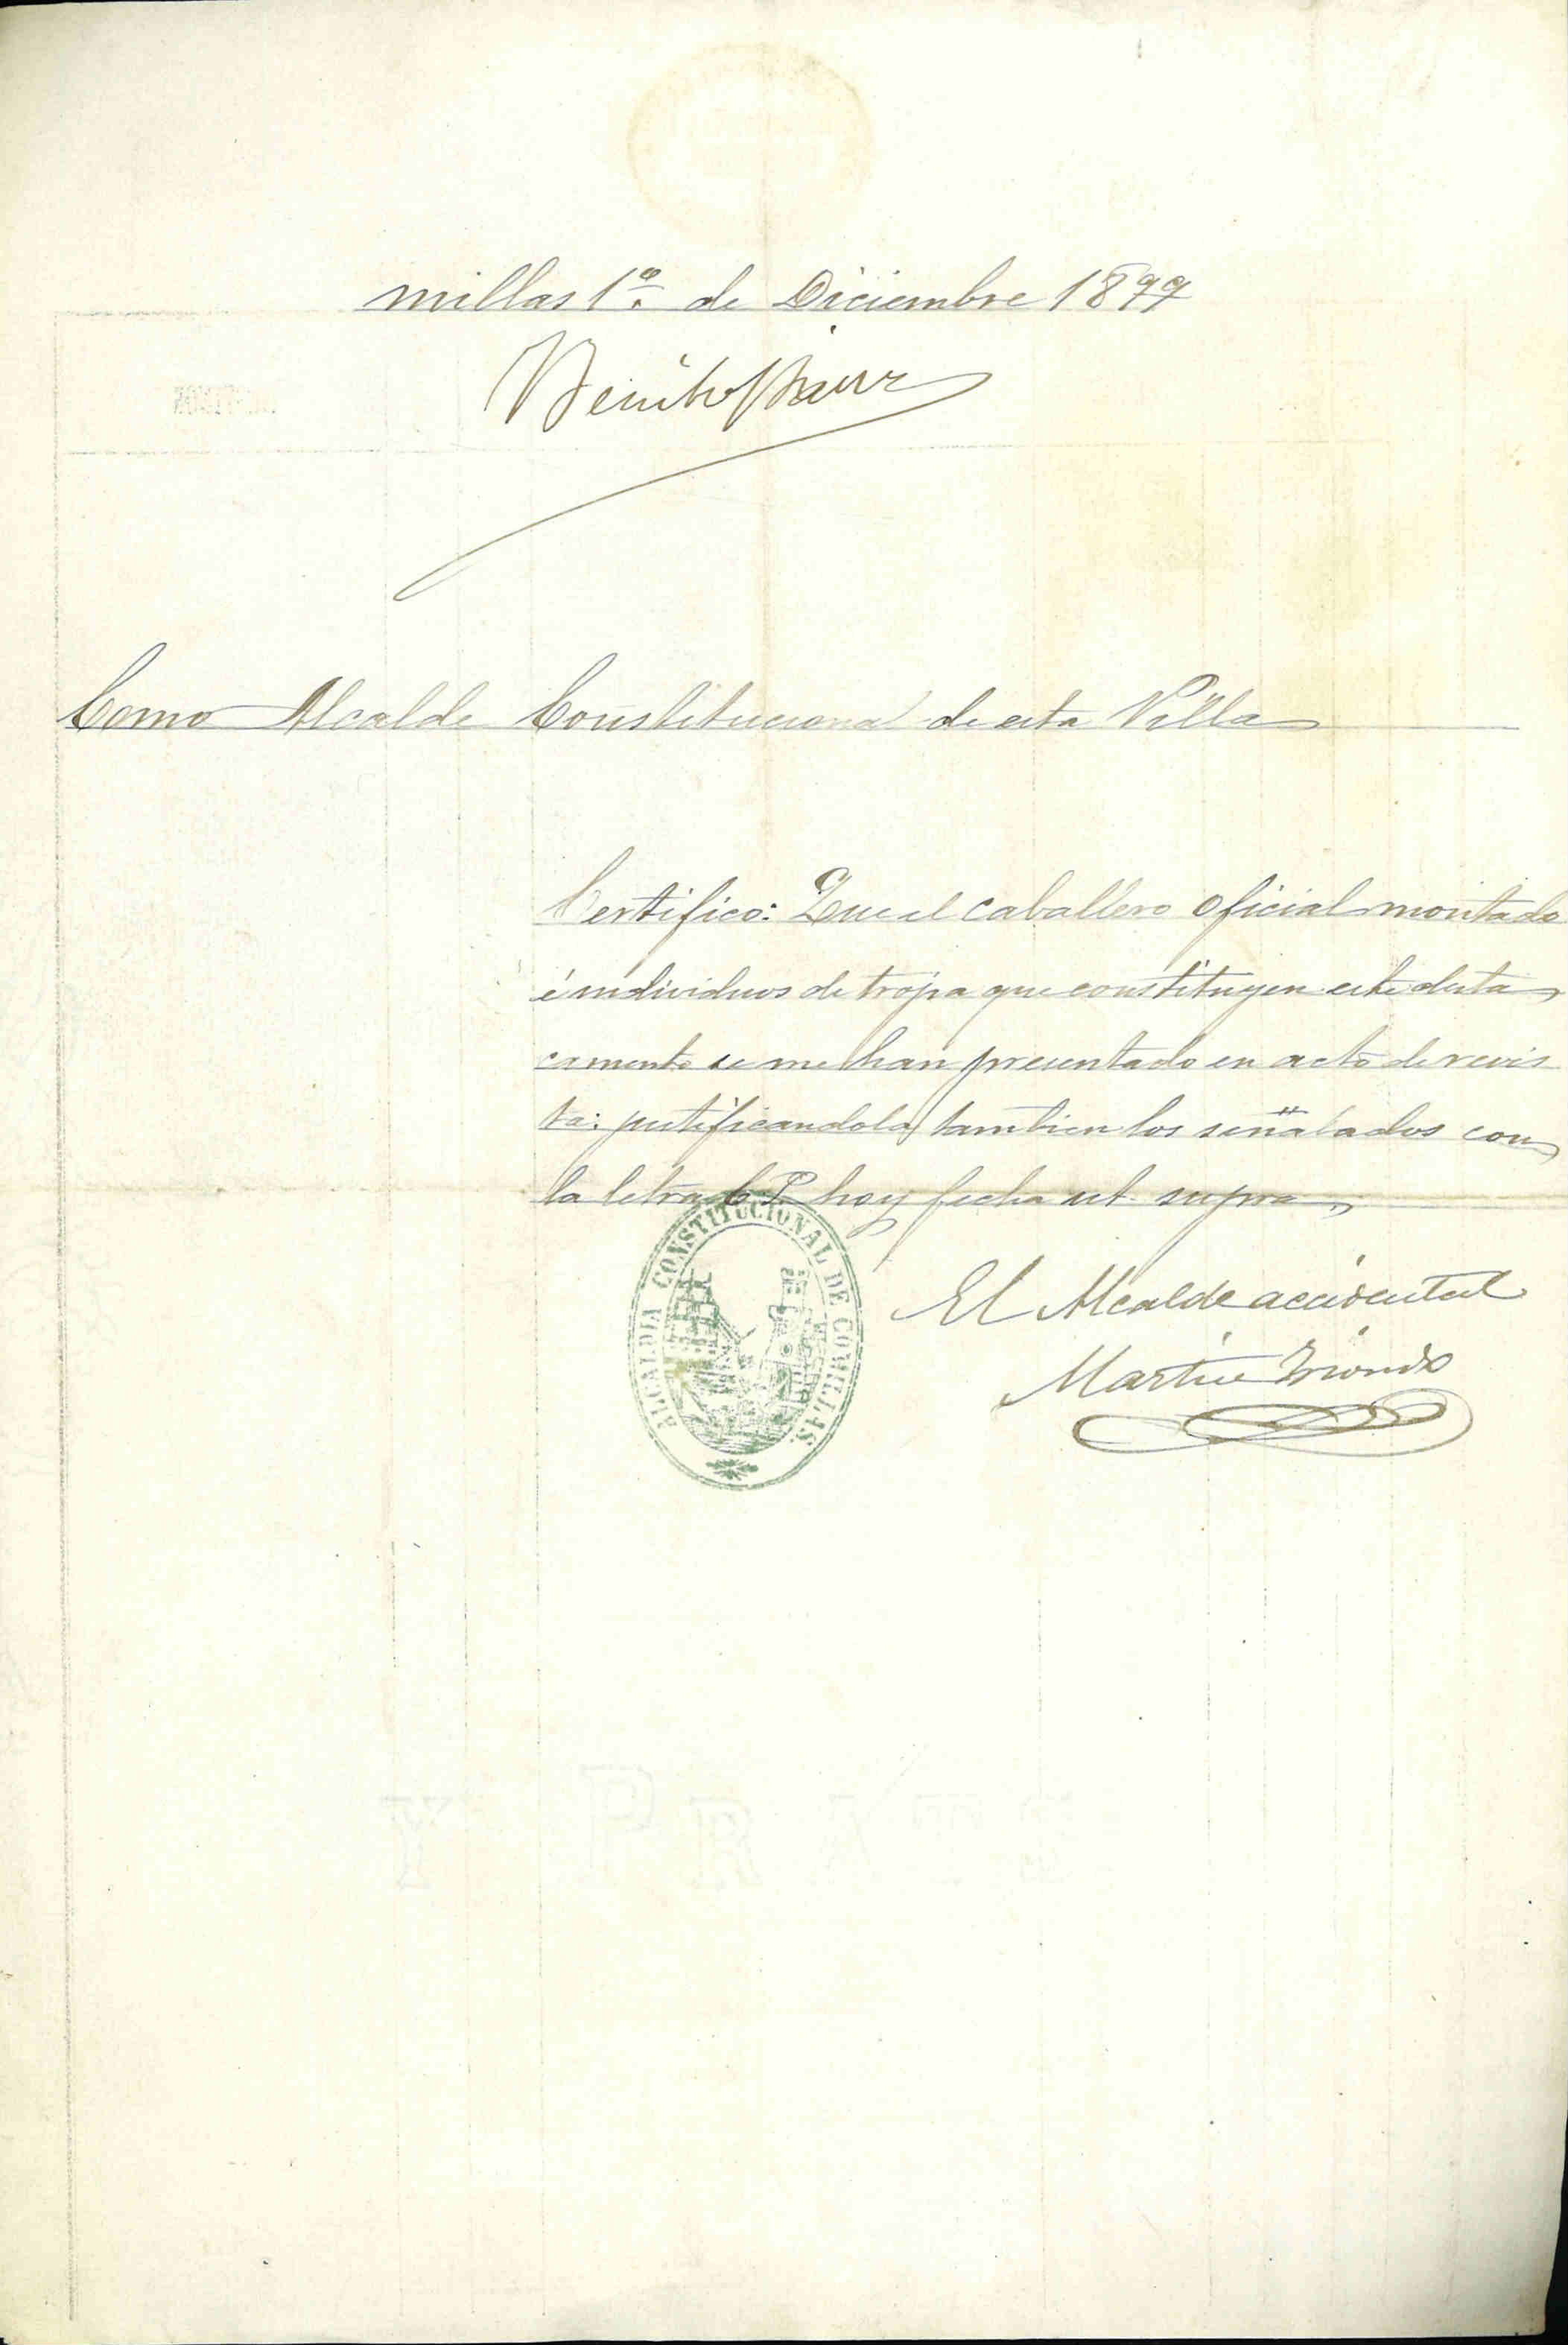 millas 1º. de Diciembre 1897
Benito
Como Alcalde Constitucional de esta Villa
Certifico: Que el caballero oficial montado
é individuos de tropa que constituyen este desta
camento se me han presentado en acto de revis
ta: justificandola tambien los señalados con
la letra C. P. hoy fecha ut supra
ALCALDIA CONSTITUCIONAL DE COMILLAS.
El Alcalde accidental
Martin